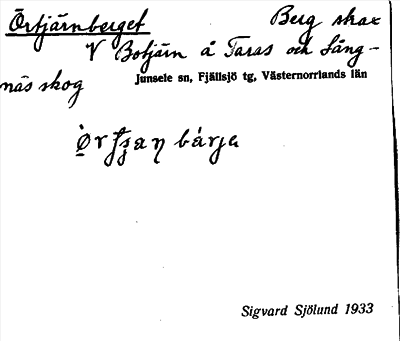 Örtjärnberget Berg skax
V Botjärn å Taras och Lång-
näs skog Junsele sn, Fjällsjö tg, Västernorrlands län
Sigvard Sjölund 1933